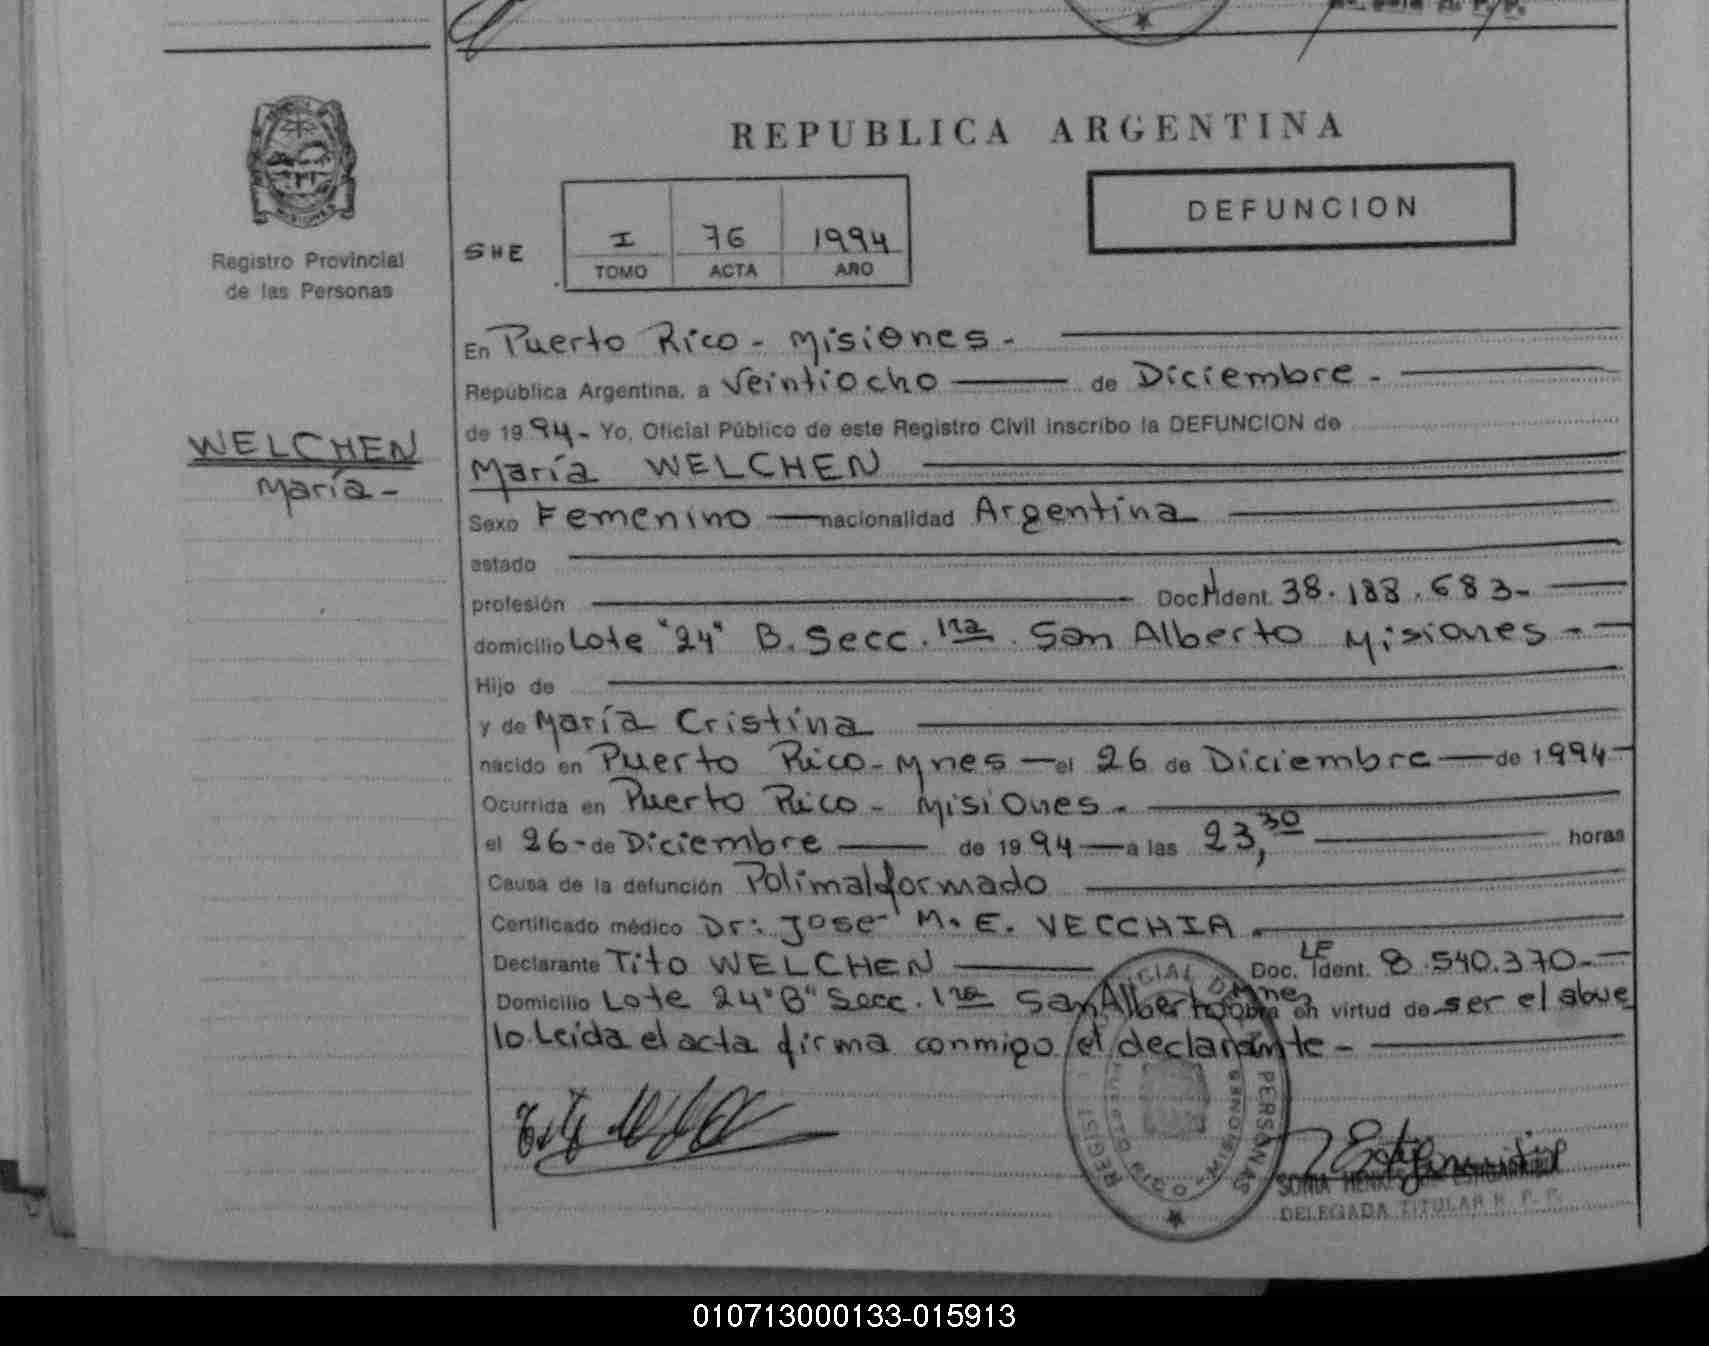 REPUBLICA ARGENTINA
MISIONES
Registro Provincial
de las Personas
DEFUNCION
SHE
I 76 1994
TOMO ACTA AÑO
En Puerto Rico - Misiones -
República Argentina, a Veintiocho de Diciembre -
de 1994 - Yo, Oficial Público de este Registro Civil inscribo la DEFUNCION de
WELCHEN
María -
María WELCHEN
Sexo Femenino nacionalidad Argentina
estado
profesión Doc. Ident. 38.188.683-
domicilio Lote "24" B. Secc. 1ra. San Alberto Misiones -
Hijo de
y de María Cristina
nacido en Puerto Rico - Mnes el 26 de Diciembre de 1994
Ocurrida en Puerto Rico - Misiones -
el 26 - de Diciembre de 1994 a las 23,30 horas
Causa de la defunción Polimalformado
Certificado médico Dr: José M. E. VECCHIA.
Declarante Tito WELCHEN Doc. LE Ident. 8.540.370-
Domicilio Lote 24 "B" Secc. 1ra San Alberto Mnes Obra en virtud de ser el abue
lo. Leida el acta firma conmigo el declarante -
PERSONAS
PUERTO RICO - MISIONES
SONIA
DELEGADA TITULAR R. P. P.
010713000133-015913